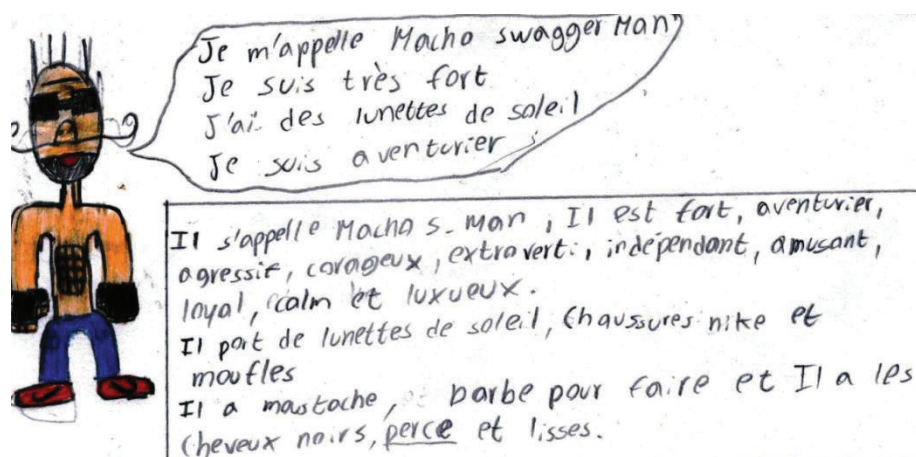 Je m'appelle Macho swagger Man
Je suis très fort
J'ai des lunettes de soleil
Je suis aventurier
Il s'appelle Macho s. Man, Il est fort, aventurier,
agressif, corageux, extraverti, indépendant, amusant,
loyal, calm et luxueux.
Il port de lunettes de soleil, Chaussures nike et
moufles
Il a moustache, barbe pour faire et Il a les
Cheveux noirs, perce et lisses.